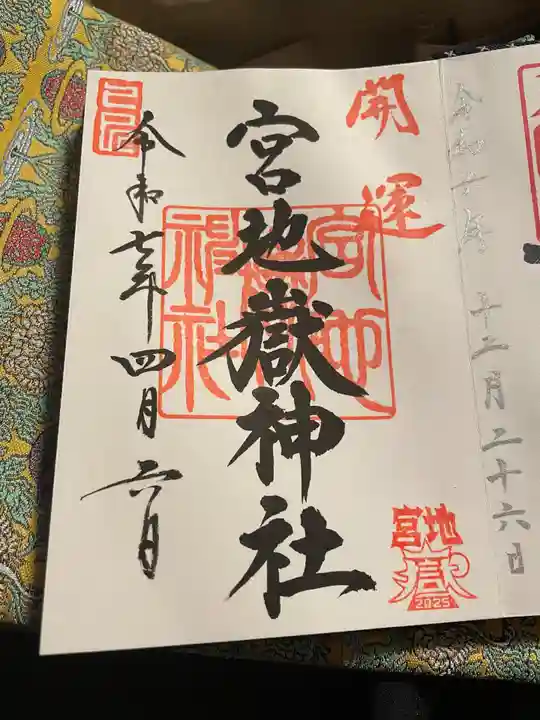 開運
宮地嶽神社
令和七年四月六日
宮地嶽神社
宮地嶽
2025
十二月二十六日